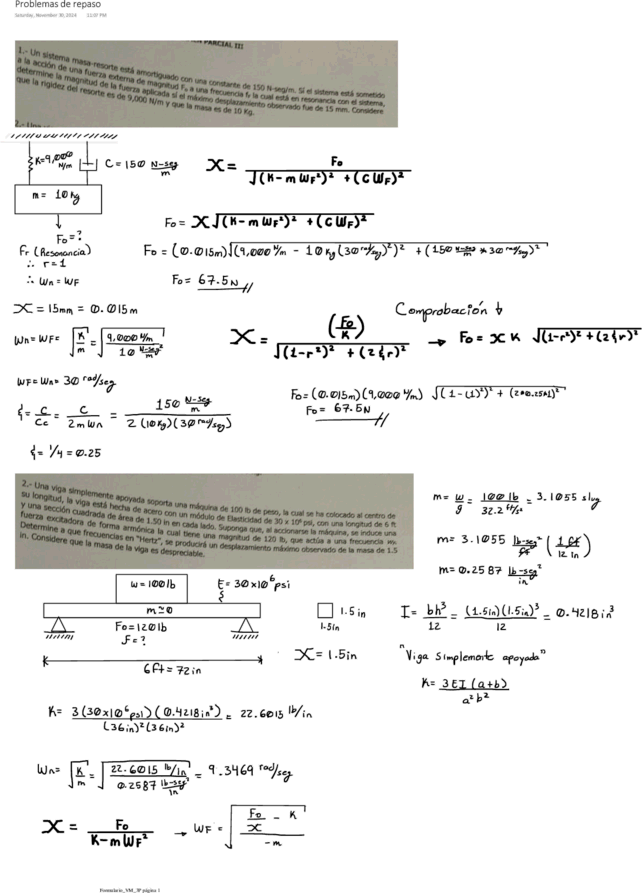 Problemas de repaso
Saturday, November 30, 2024 11:07 PM
PARCIAL III
1.- Un sistema masa-resorte está amortiguado con una constante de 150 N-seg/m. Si el sistema está sometido
a la acción de una fuerza externa de magnitud F₀ a una frecuencia f_F la cual está en resonancia con el sistema,
determine la magnitud de la fuerza aplicada si el máximo desplazamiento observado fue de 15 mm. Considere
que la rigidez del resorte es de 9,000 N/m y que la masa es de 10 Kg.
K=9,000 N/m
C = 150 N-seg/m
m = 10 Kg
F₀ = ?
Fr (Resonancia)
∴ r=1
∴ Wn = WF
X = F₀ / √((K - m WF²)² + (C WF)²)
F₀ = X √((K - m WF²)² + (C WF)²)
F₀ = (0.015m) √((9,000 N/m - 10 Kg (30 rad/seg)²)² + (150 N-seg/m * 30 rad/seg)²
F₀ = 67.5 N
X = 15mm = 0.015 m
Wn = WF = √(K/m) = √(9,000 N/m / 10 N-seg²/m)
WF = Wn = 30 rad/seg
ξ = C/Cc = C / 2 m Wn = 150 N-seg/m / 2 (10Kg)(30 rad/seg)
ξ = 1/4 = 0.25
Comprobación ↓
X = (F₀/K) / √((1-r²)² + (2ξr)²) → F₀ = X K √((1-r²)² + (2ξr)²)
F₀ = (0.015m)(9,000 N/m) √((1-(1)²)² + (2*0.25*1)²
F₀ = 67.5 N
2.- Una viga simplemente apoyada soporta una máquina de 100 lb de peso, la cual se ha colocado al centro de
su longitud, la viga está hecha de acero con un módulo de Elasticidad de 30 x 10⁶ psi, con una longitud de 6 ft
y una sección cuadrada de área de 1.50 in en cada lado. Suponga que, al accionarse la máquina, se induce una
fuerza excitadora de forma armónica la cual tiene una magnitud de 120 lb, que actúa a una frecuencia
Determine a que frecuencias en "Hertz", se producirá un desplazamiento máximo observado de la masa de 1.5
in. Considere que la masa de la viga es despreciable.
m = w/g = 100 lb / 32.2 ft/s² = 3.1055 slug
m = 3.1055 lb-seg²/ft (1 ft / 12 in)
m = 0.2587 lb-seg²/in
w = 100 lb
E = 30x10⁶ psi
m ≃ 0
F₀ = 120 lb
f = ?
6 ft = 72 in
1.5 in
1.5in
X = 1.5in
I = bh³/12 = (1.5in)(1.5in)³/12 = 0.4218 in³
"Viga simplemente apoyada"
K = 3EI (a+b) / a²b²
K = 3 (30x10⁶ psi)(0.4218 in³) / (36in)²(36in)² = 22.6015 lb/in
Wn = √(K/m) = √(22.6015 lb/in / 0.2587 lb-seg²/in) = 9.3469 rad/seg
X = F₀ / K - m WF² → WF = √((F₀/X - K) / -m)
Formulario_VM_3P página 1